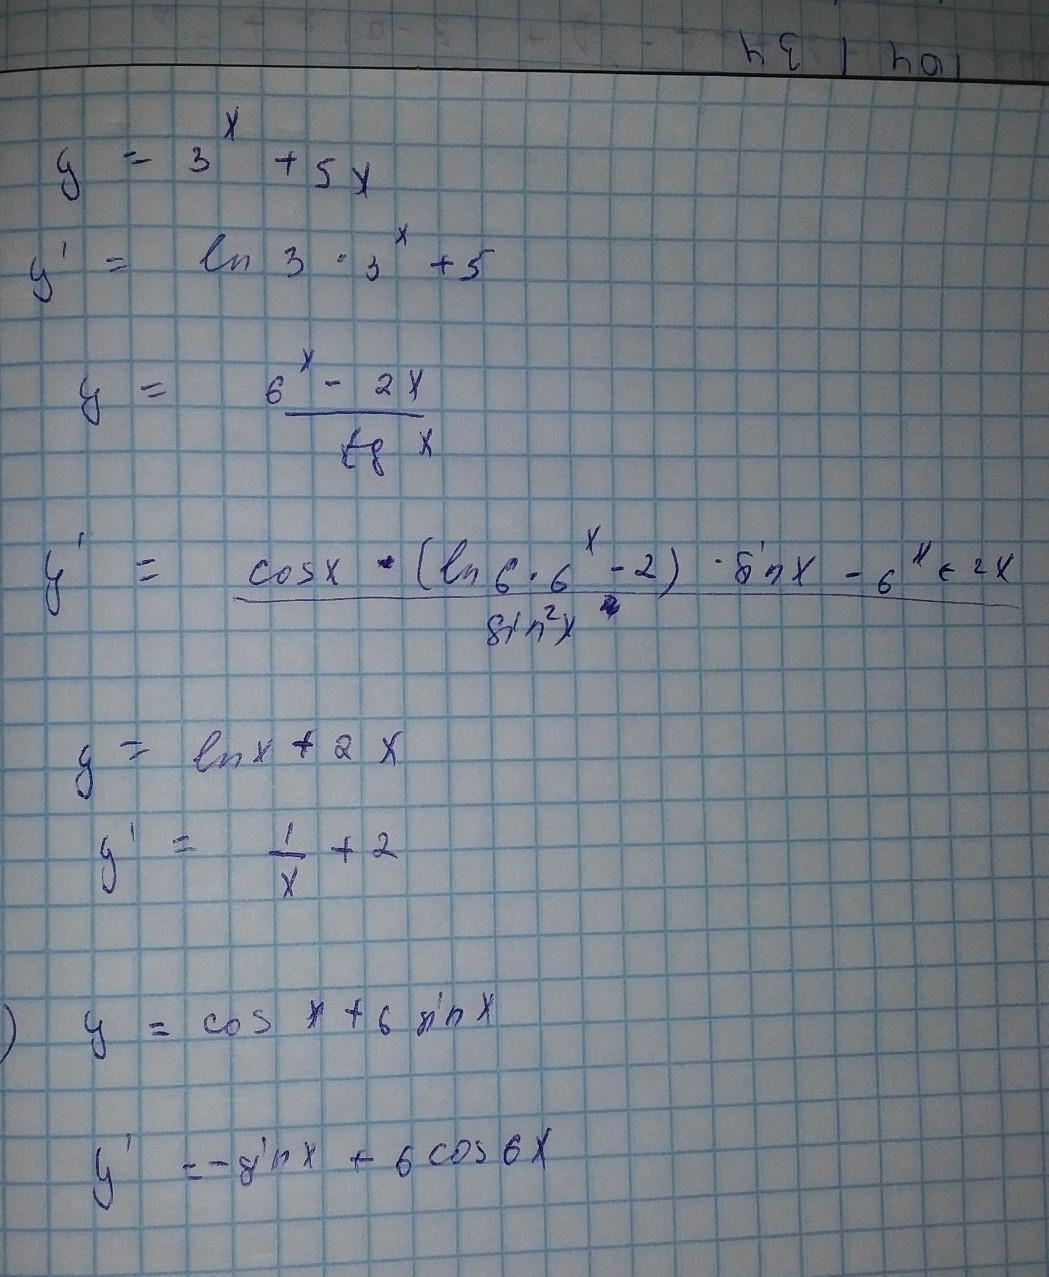 y = 3^x + 5x
y' = ln 3 · 3^x + 5
y = (6^x - 2x) / tg x
y' = (cosx · (ln 6 · 6^x - 2) · sinx - 6^x + 2x) / sin²x
y = lnx + 2x
y' = 1/x + 2
) y = cos x + 6 sinx
y' = -sinx + 6 cos 6x